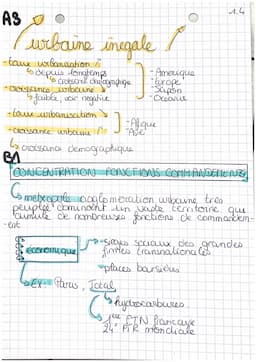 A3
1.4
urbaine inegale
- taux urbanisation
depuis longtemps
croissance démographique
- croissance urbaine
faible, voir négative
- Amerique
- Europe
- Japon
- Océanie
- taux urbanisation
- croissante urbaine
- Afrique
- Asie
croissance demographique
B1
CONCENTRATION FONCTIONS COMMANDEMENTS
métropole agglomération urbaine très
peuplée dominant un vaste territoire qui
cumule de nombreuses fonctions de commandem-
-ent
économique
sièges sociaux des grandes
firmes transnationales
places boursières
Ex. Paris, Total
hydrocarbures
1ère FTN française
24e FTN mondiale